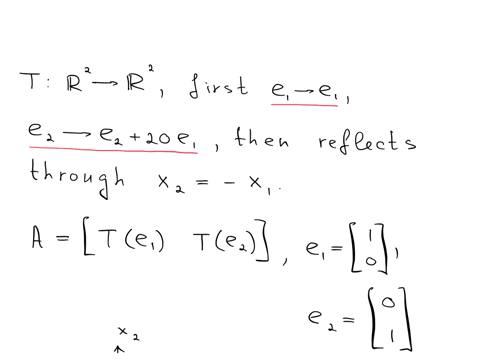 T: ℝ² → ℝ², first e₁ → e₁,
e₂ → e₂ + 20e₁, then reflects
through x₂ = - x₁.
A = [T(e₁) T(e₂)], e₁ = [1 0],
e₂ = [0 1]
x₂